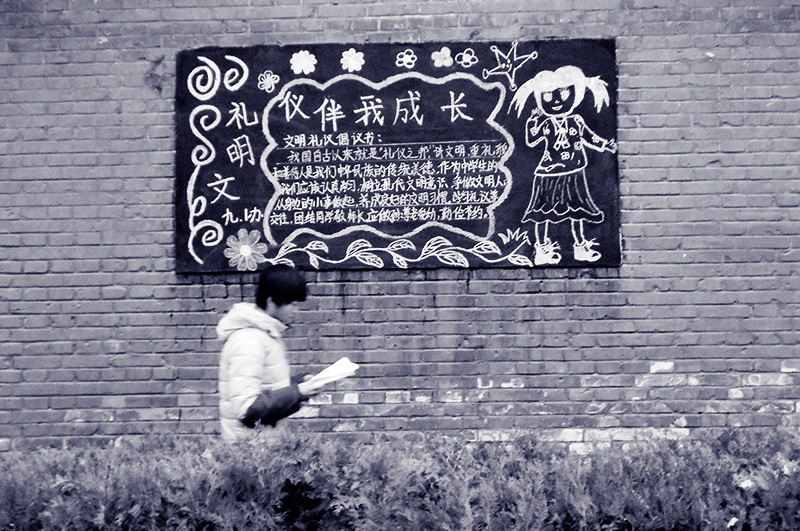 礼
明
文
九.1办
仪伴我成长
文明礼议倡议书：
我国自古以来就是“礼仪之邦”讲文明重礼
我们中华民族的传统美德，作为中学生的
我们应该认真学习，树立现代文明意识，争做文明人
从身边的小事做起，养成良好的文明习惯，
交往，团结同学敬师长 尊老爱幼，勤俭节约。